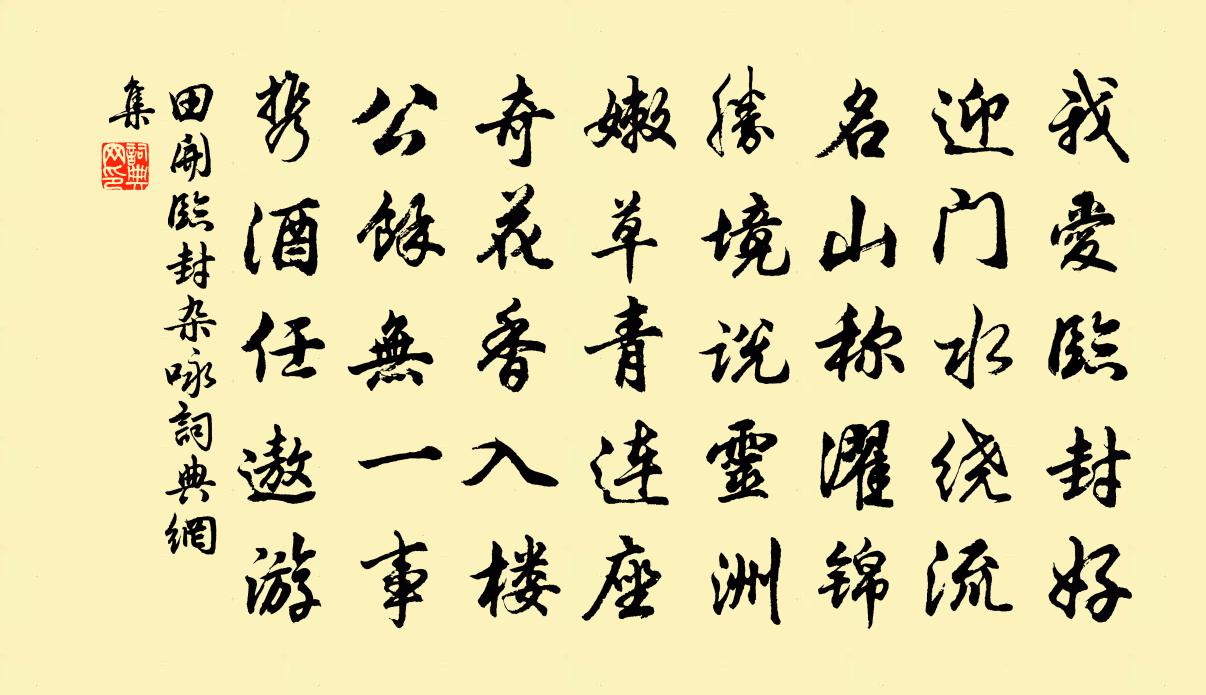 我愛臨封好
迎门水绕流
名山称濯锦
勝境说靈洲
嫩草青连座
奇花香入楼
公餘無一事
携酒任遨游
田開臨封杂咏詞典網
集
詞典
网印